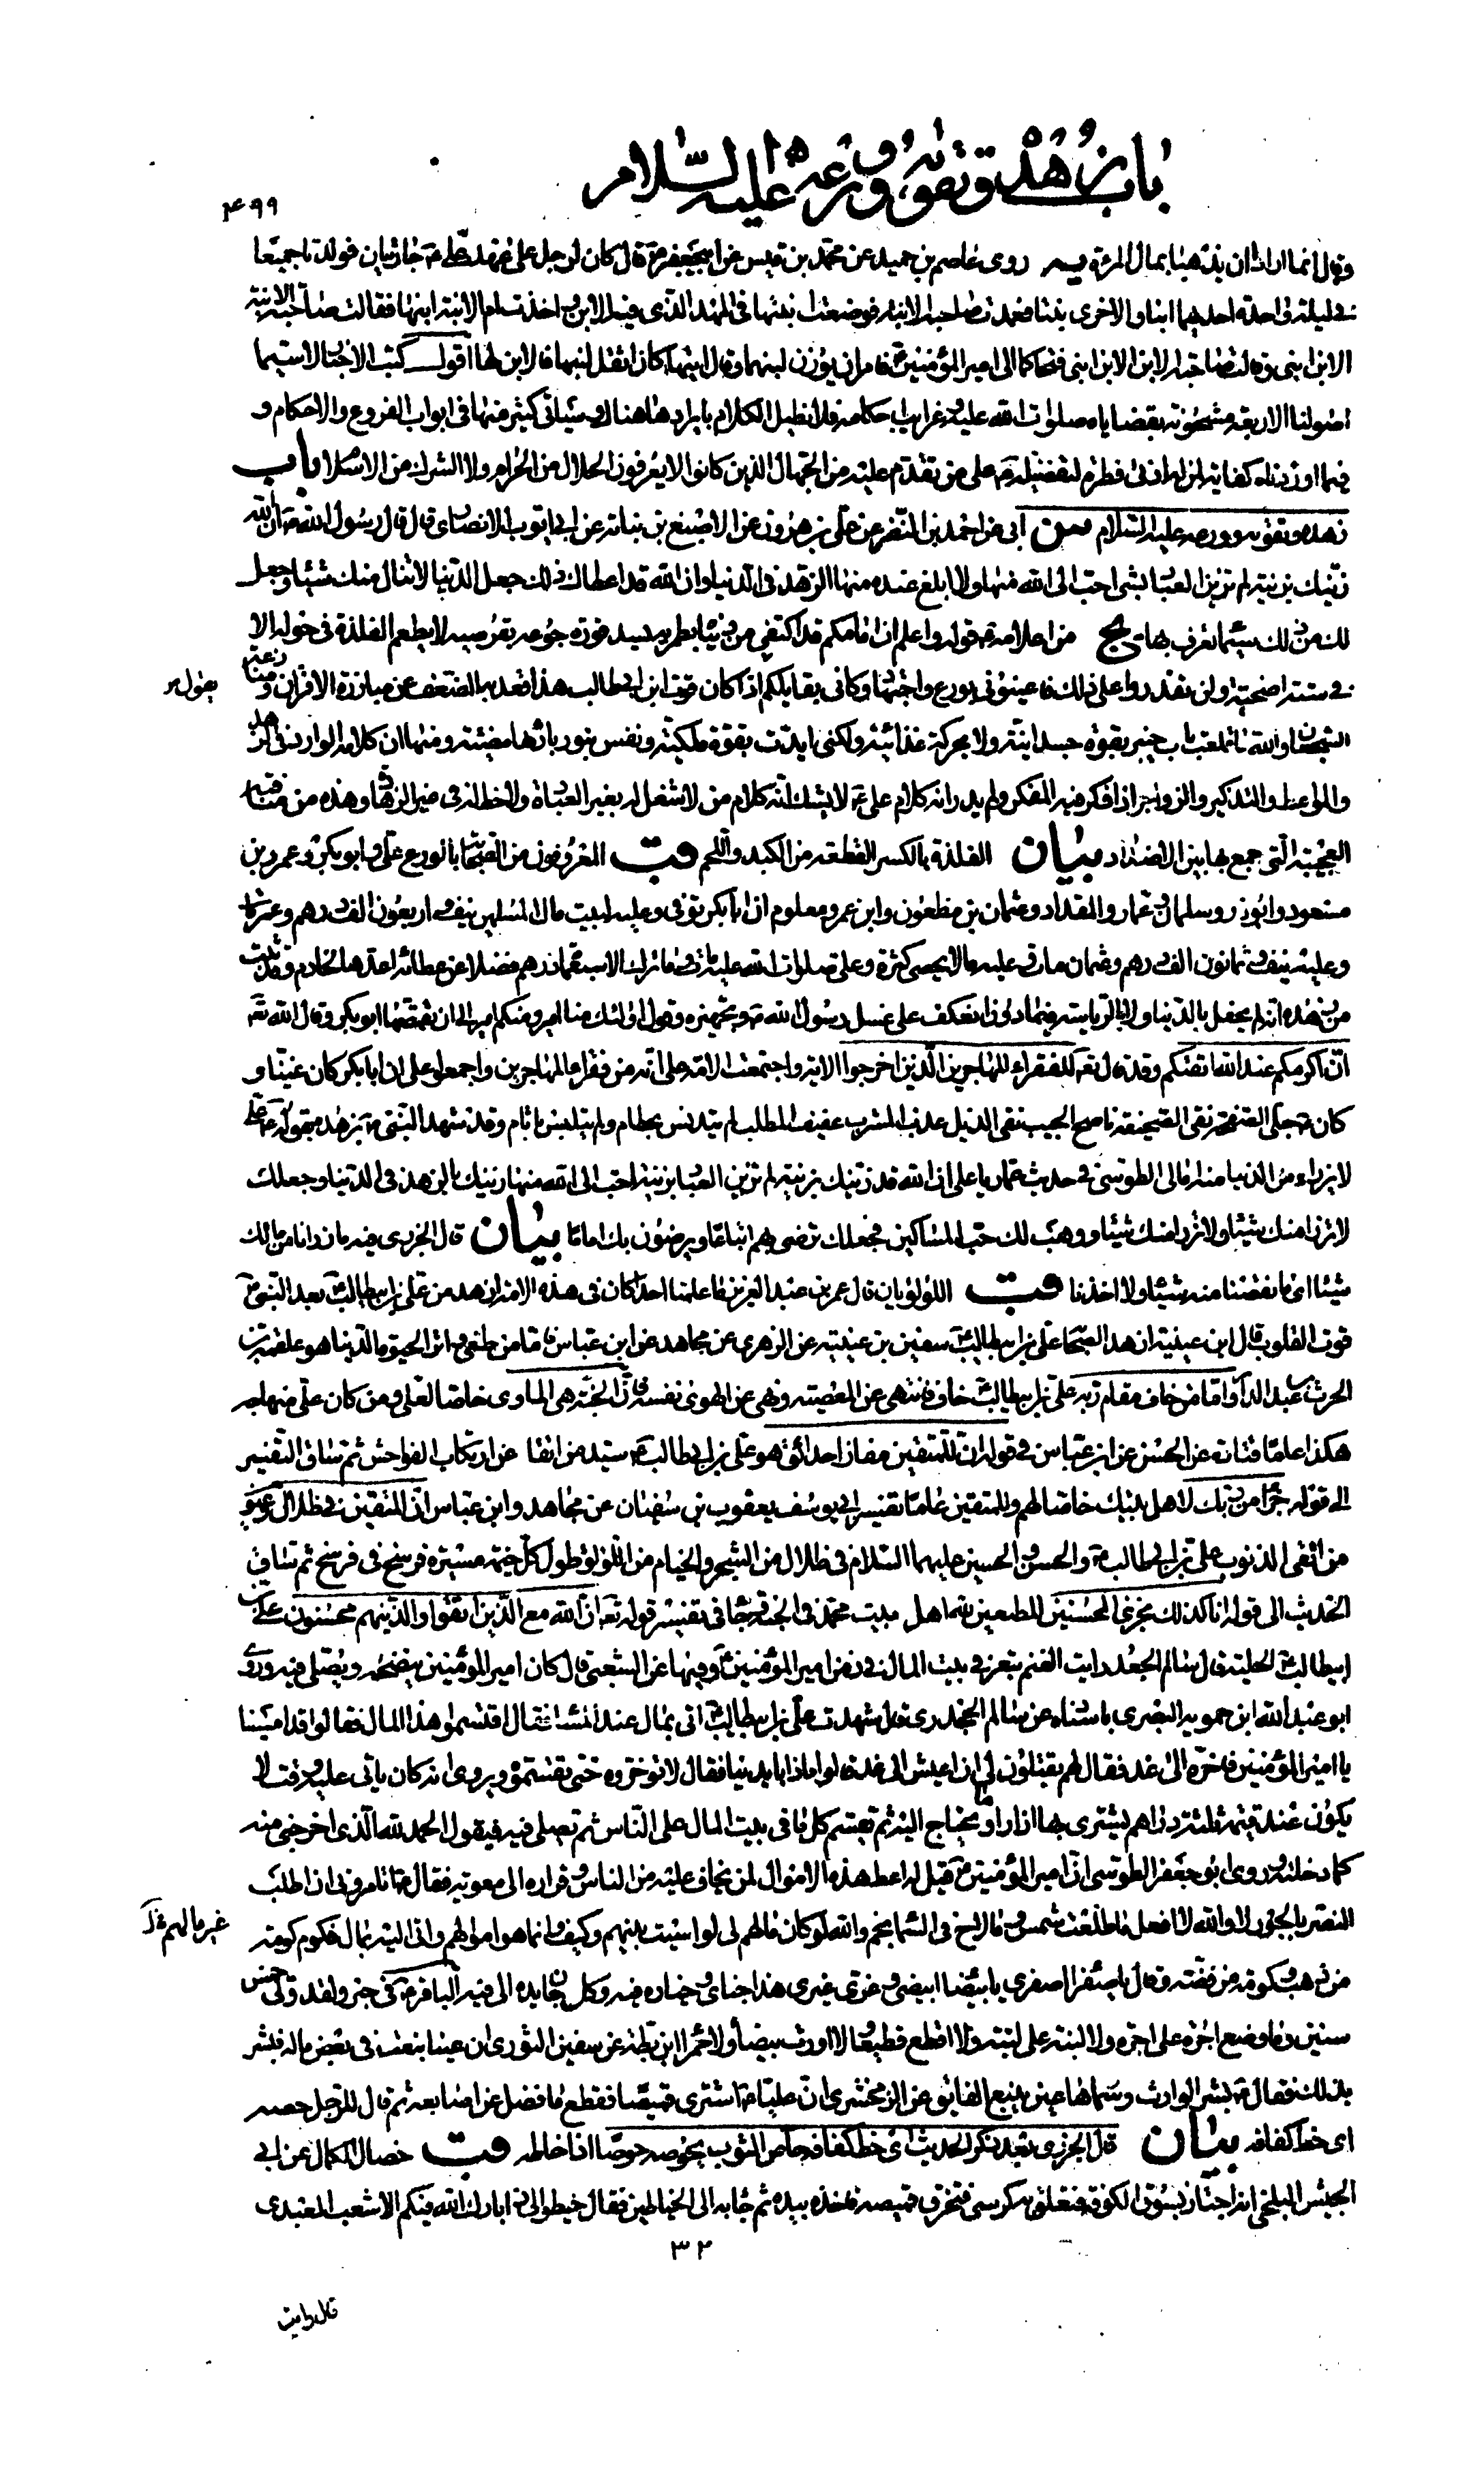 باب زهده وتقواه وورعه عليه السلام
۴۹۹
وقال انما ارادا ان يذهبا بمال المرأة يه روى عاصم بن حميد عن محمد بن قيس عن ابيجعفر ع قال كان لرجل على عهد علي ع جاريتان فولدتا جميعا
في ليلة واحدة احديهما ابنا والاخرى بنتا فعمدت صاحبة الابنة فوضعت ابنتها في المهد الذي فيه الابن واخذت ام الابنة ابنها فقالت صاحبة الابنة
الابن ابني وقالت صاحبة الابن الابن ابني فتحاكما الى امير المؤمنين ع فامر ان يوزن لبنهما وقال ايتهما كان اثقل لبنها فالابن لها اقول كتب الاخبار لا سيما
اصولنا الاربعة مشحونة بقضاياه صلوات الله عليه وغرايب احكامه فلا نطيل الكلام بايرادها هنا وسيأتي كثير منها في ابواب الفروع والاحكام و
فيما اوردناه كفاية لمن له ادنى فطرة لتفضيله ع على من تقدم عليه من الجهال الذين كانوا لا يعرفون الحلال من الحرام ولا الشرك من الاسلام باب
زهده وتقوه وورعه عليه السلام ابي عن احمد بن النضر عن علي بن هرون عن الاصبغ بن نباتة عن ابي ايوب الانصاري قال قال رسول الله ص ان الله
زينك بزينة لم تزين العباد بشئ احب الى الله منها ولا ابلغ عنده منها الزهد في الدنيا وان الله قد اعطاك ذلك جعل الدنيا لا تنال منك شيئا وجعل
لك من ذلك سيماء تعرف بها يج من اعلامه ع قوله واعلم ان امامكم قد اكتفى من دنياه بطمريه يسد فورة جوعه بقرصيه لا يطعم الفلذة في حوله الا
في سنة اضحيته ولن تقدروا على ذلك فاعينوني بورع واجتهاد وكاني بقايلكم اذا كان قوت ابن ابيطالب هذا قعد به الضعف عن مبارزة الاقران ومنازعة
يقول
الشجعان والله ما قلعت باب خيبر بقوة جسدانية ولا بحركة غذائية ولكني ايدت بقوة ملكية ونفس بنور بارئها مضيئة ومنها ان كلامه الوارد في الزهد
والمواعظ والتذكير والزواجر اذا فكر فيه المفكر ولم يدر انه كلام علي ع لا يشك انه كلام من لا شغل له بغير العبادة ولا حظ له في غير الزهادة وهذه من مناقبه
العجيبة التي جمع بها بين الاضداد بيان الفلذة بالكسر القطعة من الكبد واللحم قب المعروفون من الصحابة بالورع علي وابو بكر وعمر وبن
مسعود وابوذر وسلمان وعمار والمقداد وعثمان بن مظعون وابن عمر ومعلوم ان ابا بكر توفى وعليه لبيت مال المسلمين نيف واربعون الف درهم وعمر مات
وعليه نيف وثمانون الف درهم وعثمان مات وعليه مالا يحصى كثرة وعلي صلوات الله عليه مات وما ترك الا سبعمائة درهم فضلا عن عطائه اعدها لخادم وقد ثبت
من زهده انه لم يحفل بالدنيا ولا الرياسة فيها دون ان عكف على غسل رسول الله ص وتجهيزه وقول اولئك منا امير ومنكم امير الى ان تقمصها ابو بكر وقال الله تع
ان اكرمكم عند الله اتقيكم وقد قال تع للفقراء المهاجرين الذين اخرجوا الاية واجتمعت الامة على انه من فقراء المهاجرين واجمعوا على ان ابا بكر كان غنيا و
كان ع جلي الصفحة نقي الصحيفة ناصح الجيب نقي الذيل عذب المشرب عفيف المطلب لم يتدنس بحطام ولم يتلبس باثام وقد شهد النبي ص بزهده بقوله علي
لا يرزء من الدنيا منه امالي الطوسي في حديث عمار يا علي ان الله قد زينك بزينة لم تزين العباد بزينة احب الى الله منها زينك بالزهد في الدنيا وجعلك
لا ترزأ منك شيئا ولا ترزأ منك شيئا ووهب لك حب المساكين فجعلك ترضى بهم اتباعا ويرضون بك اماما بيان قال الجزري فيه ما رزانا من مالك
شيئا اى ما نقصنا منه شيئا ولا اخذنا قب اللؤلؤيات قال عمر بن عبد العزيز ما علمنا احدا كان في هذه الامة ازهد من علي بن ابيطالب ع بعد النبي ص
قوت القلوب قال ابن عيينة ازهد الصحابة علي بن ابيطالب ع سفين بن عيينة عن الزهري عن مجاهد عن ابن عباس فاما من طغى واثر الحيوة الدنيا هو علقمة بن
الحرث بن عبد الدار واما من خاف مقام ربه علي بن ابيطالب ع خاف فانتهى عن المعصية ونهى عن الهوى نفسه فان الجنة هي الماوى خاصا لعلي ومن كان على منهاجه
هكذا عاما قتادة عن الحسن عن ابن عباس في قوله ان للمتقين مفازا حدائق هو علي بن ابي طالب ع سيد من اتقا عن ارتكاب الفواحش ثم ساق التفسير
الى قوله جزاء من ربك لاهل بيتك خاصا لهم وللمتقين عاما تفسير ابي يوسف يعقوب بن سفيان عن مجاهد وابن عباس ان المتقين في ظلال وعيون
من اتقى الذنوب علي بن ابي طالب ع والحسن والحسين عليهما السلام في ظلال من الشجر والخيام من اللؤلؤ طول كل خيمة مسيرة فرسخ في فرسخ ثم ساق
الحديث الى قوله انا كذلك نجزي المحسنين المطيعين لله اهل بيت محمد في الجنة وجاء في تفسير قوله تع ان الله مع الذين اتقوا والذين هم محسنون علي بن
ابيطالب ع الحلية قال سالم الجعد رايت الغنم تبعر في بيت المال في زمن امير المؤمنين ع وفيها عن الشعبي قال كان امير المؤمنين ينضحه ويصلي فيه وروى
ابو عبد الله ابن حمويه البصري باسناده عن سالم الجحدري قال شهدت علي بن ابيطالب ع اتي بمال عند المساء فقال اقتسموا هذا المال فقالوا قد امسينا
يا امير المؤمنين فاخره الى غد فقال لهم تقبلون لي ان اعيش الى غد قالوا ماذا بايدينا فقال لا تؤخروه حتى تقسموه ويروى انه كان ياتي عليه وقت لا
يكون عنده قيمة ثلثة دراهم يشتري بها ازارا وما يحتاج اليه ثم يقسم كل ما في بيت المال على الناس ثم يصلي فيه فيقول الحمد لله الذي اخرجني منه
كما دخلته وروى ابو جعفر الطوسي ان امير المؤمنين ع قيل له اعط هذه الاموال لمن يخاف عليه من الناس وفراره الى معوية فقال ع اتامروني ان اطلب
النصر بالجور لا والله لا افعل ما طلعت شمس وما لاح في السماء نجم والله لو كان مالهم لي لواسيت بينهم وكيف وانما هو اموالهم واتي اليه بمال فكوم كومة
غير مالهم
من ذهب وكومة من فضة وقال يا صفراء اصفري يا بيضاء ابيضي وغري غيري هذا جناي وخياره فيه وكل جان يده الى فيه الباقر ع في خبر ولقد ولي خمس
سنين وما وضع اجرة على اجرة ولا لبنة على لبنة ولا اقطع قطيعا ولا اورث بيضاء ولا حمراء ابن بطة عن سفين الثوري ان عينا نبعت في بعض ماله فبشر
بذلك فقال ع بشر الوارث وسماها عين ينبع الفايق عن الزمخشري ان عليا ع اشترى قميصا فقطع ما فضل عن اصابعه ثم قال للرجل حصه
اى خط كفافه بيان قال الجزري بعد ذكر الحديث اى خط كفافه حاص الثوب يحوصه حوصا اذا خاطه قب خصال الكمال عن ابي
الجيش البلخي انه اجتاز بسوق الكوفة فتعلق به كرسي فتخرق قميصه فاخذه بيده ثم جاء به الى الخياطين فقال خيطوا لي ذا بارك الله فيكم الاشعث العبدي
۳۲
قال رايت